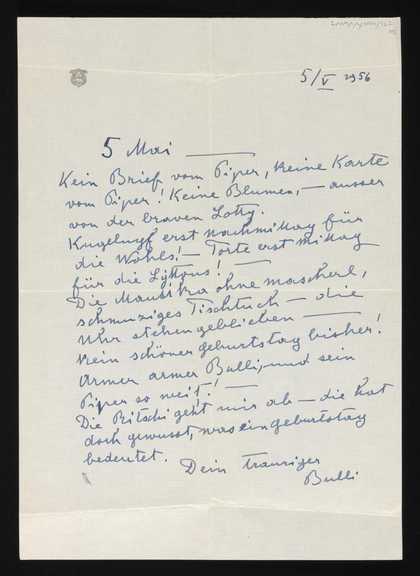 5/V 1956
5 Mai —
Kein Brief vom Piper, keine Karte
vom Piper! Keine Blumen, — ausser
von der braven Lotty.
Kugelhupf erst nachmittag für
die Wohls! — Torte erst Mittag
für die Lyttons! —
Die Mauskka ohne mascherl,
schmutziges Tischtuch — die
Uhr stehengeblieben —
Kein schöner geburtstag bisher!
Armer armer Bulli, und sein
Piper so weit! —
Die Pritschi geht mir ab — die hat
doch gewusst, was ein geburtstag
bedeutet.
Dein trauriger
Bulli